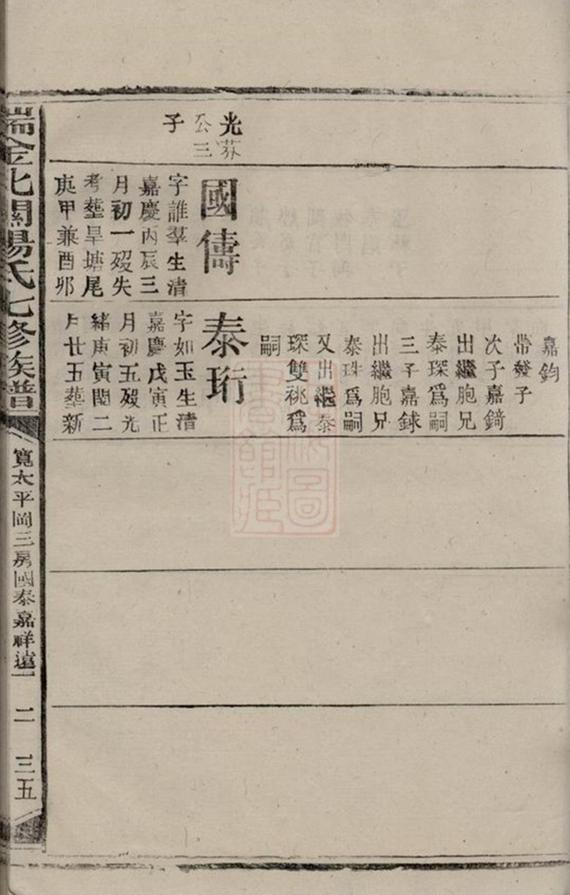 光莽
公三
子
國儔
字誰羣生清
嘉慶丙辰三
月初一歿失
考塟旱塘尾
庚甲兼酉夘
嘉鈞
帶發子
次子嘉錡
出繼胞兄
泰琛爲嗣
三子嘉銶
出繼胞兄
泰珠爲嗣
又出繼泰
琛雙祧爲
嗣
泰珩
字如玉生清
嘉慶戊寅正
月初五歿光
緒庚寅閏二
月廿五塟新
瑞金北關楊氏七修族譜
寬太平岡三房國泰嘉祥遠一
二
三五